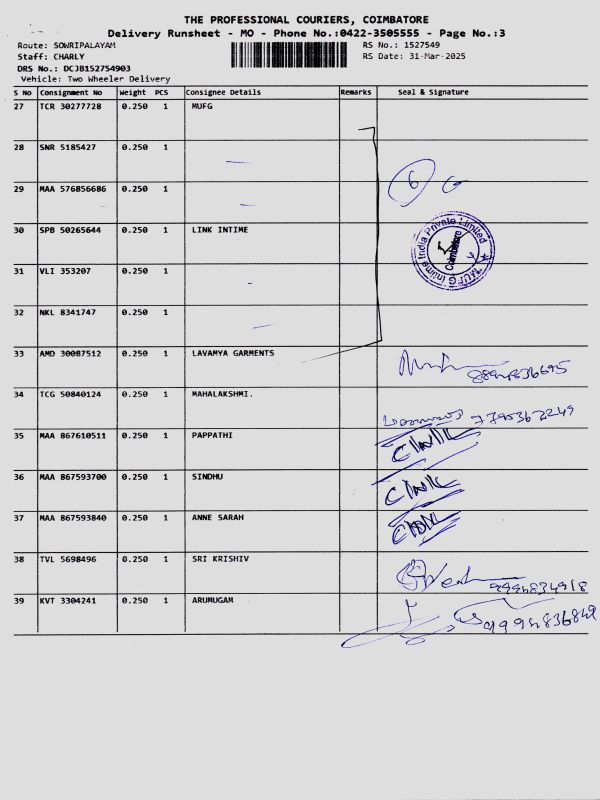 THE PROFESSIONAL COURIERS, COIMBATORE
Delivery Runsheet - MO - Phone No.:0422-3505555 - Page No.:3
Route: SOWRIPALAYAM RS No.: 1527549
Staff: CHARLY RS Date: 31-Mar-2025
DRS No.: DCJB152754903
Vehicle: Two Wheeler Delivery
S No Consignment No Weight PCS Consignee Details Remarks Seal & Signature
27 TCR 30277728 0.250 1 MUFG
28 SNR 5185427 0.250 1
29 MAA 576856686 0.250 1
6
30 SPB 50265644 0.250 1 LINK INTIME
MUFG Intime India Private Limited
Coimbatore
31 VLI 353207 0.250 1
32 NKL 8341747 0.250 1
33 AMD 30087512 0.250 1 LAVAMYA GARMENTS
34 TCG 50840124 0.250 1 MAHALAKSHMI.
35 MAA 867610511 0.250 1 PAPPATHI
36 MAA 867593700 0.250 1 SINDHU
37 MAA 867593840 0.250 1 ANNE SARAH
38 TVL 5698496 0.250 1 SRI KRISHIV
9994834918
39 KVT 3304241 0.250 1 ARUMUGAM
9994836849